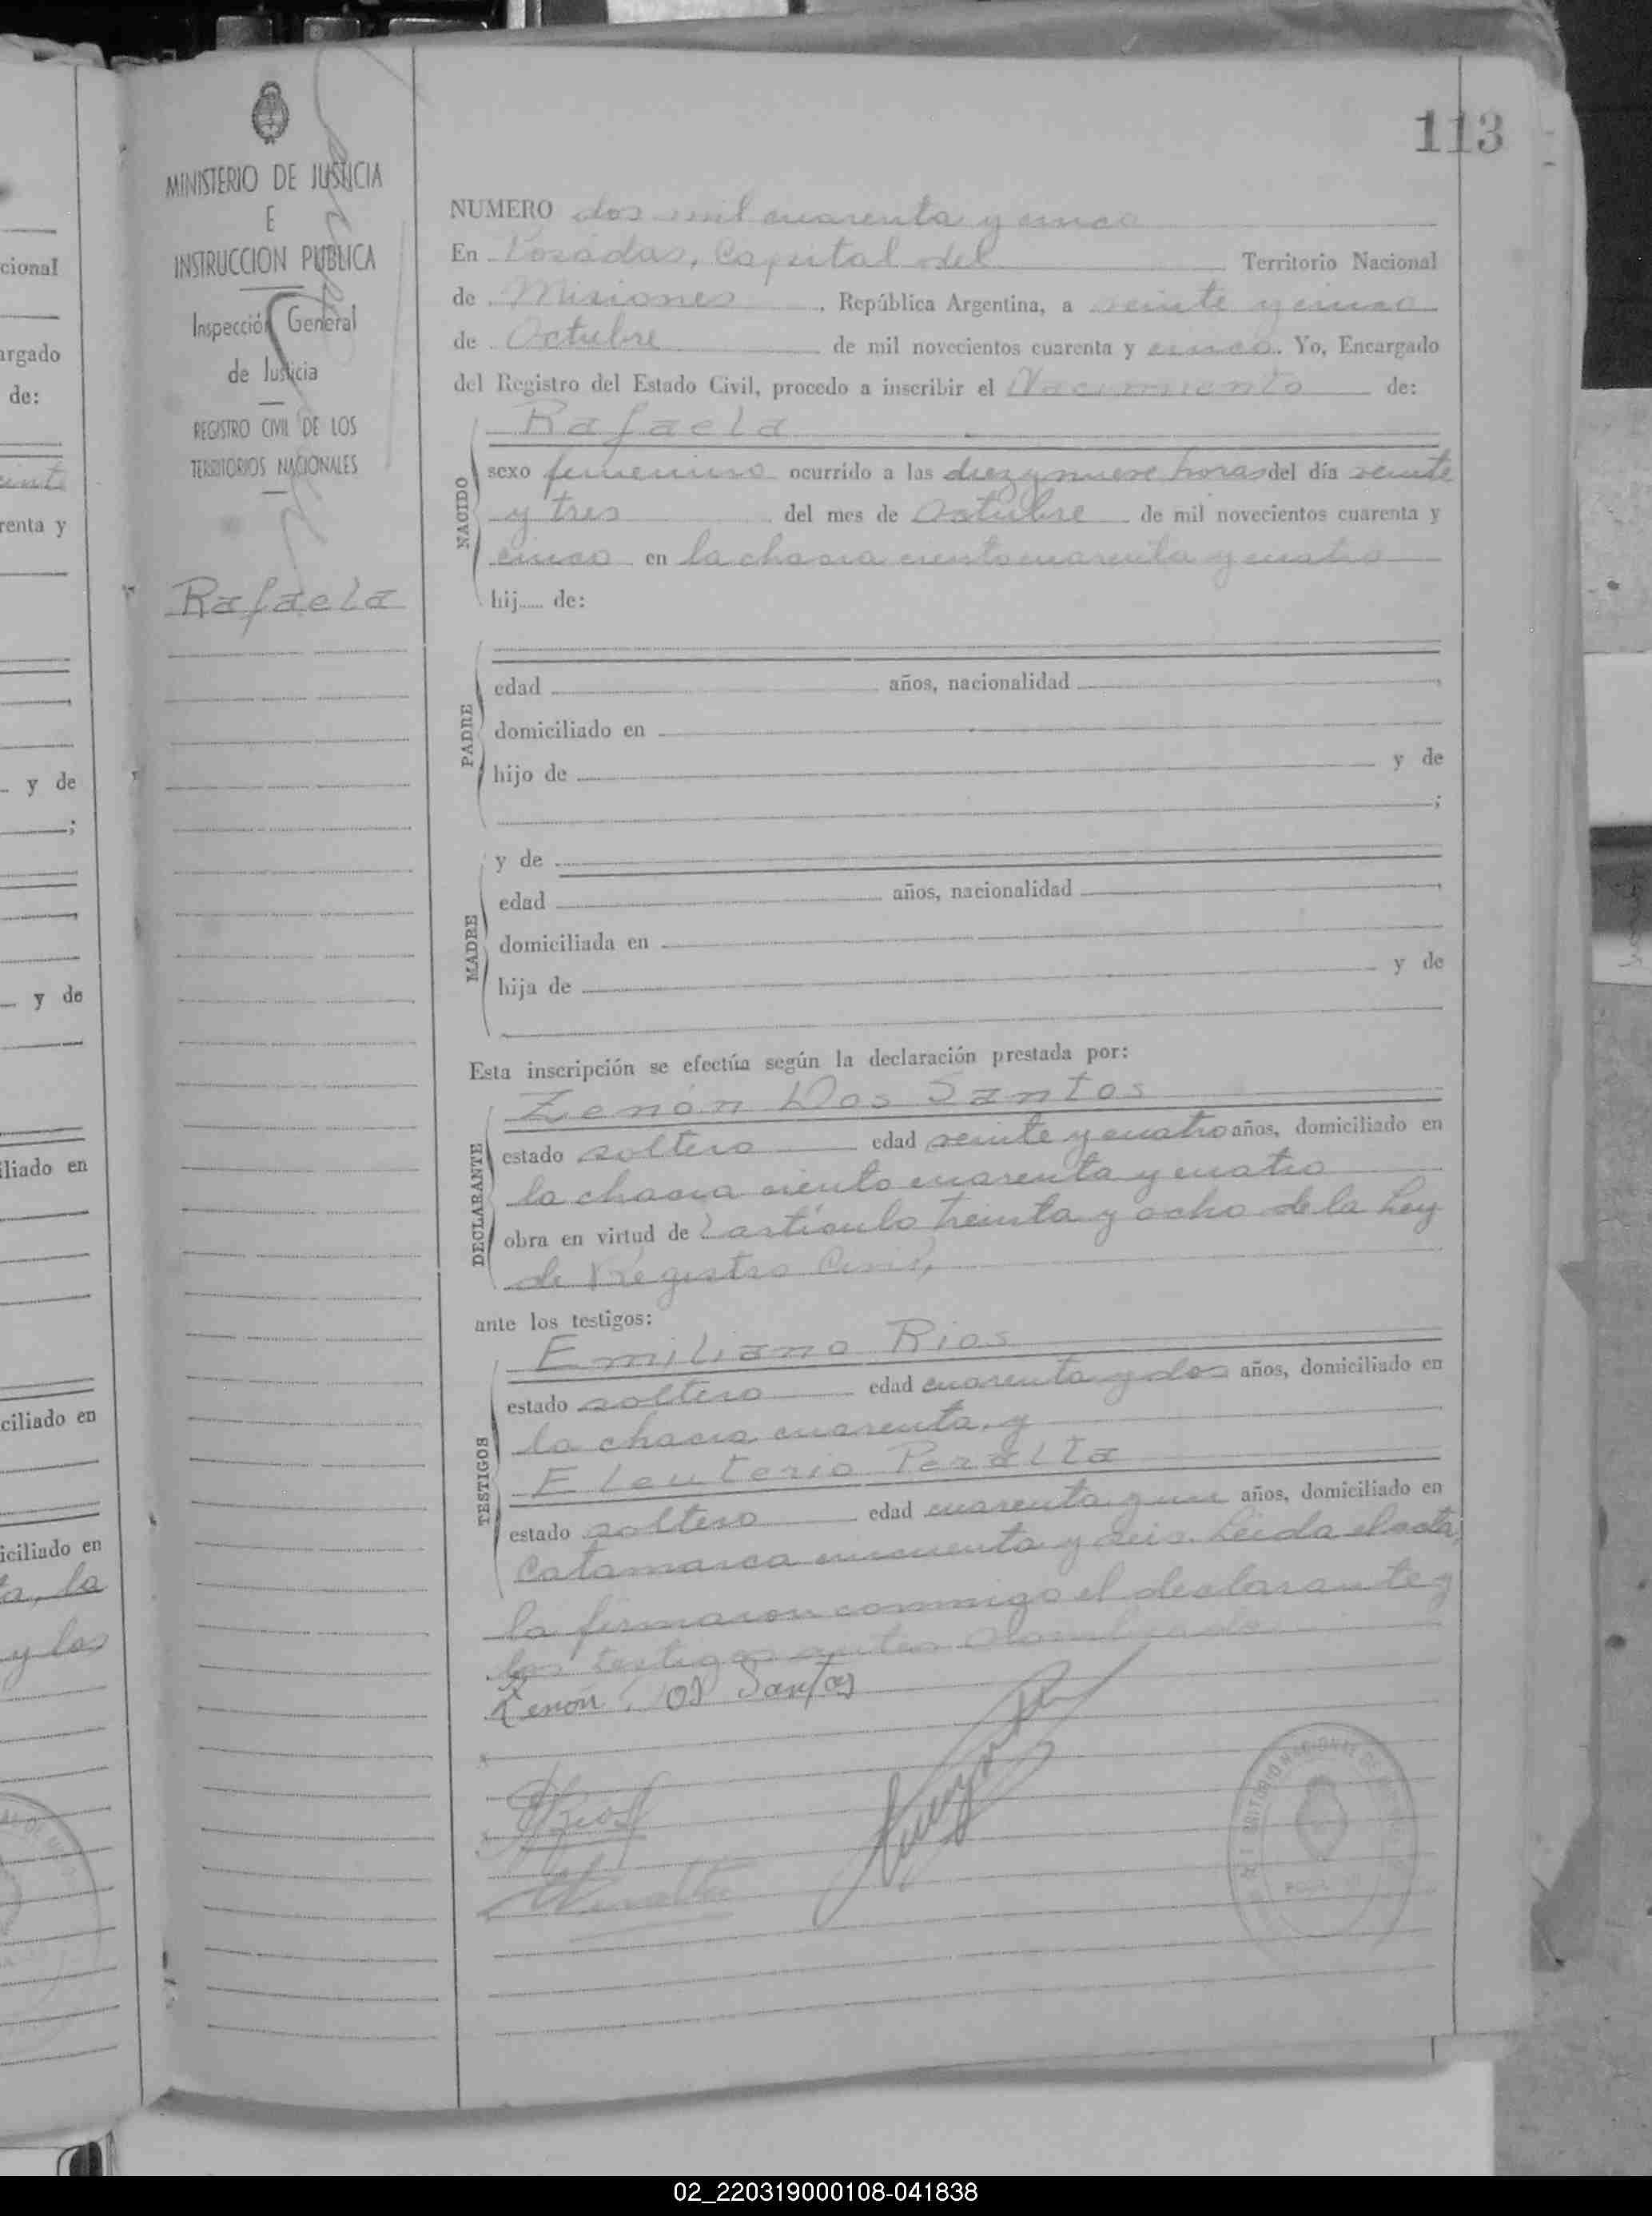 113
MINISTERIO DE JUSTICIA
E
INSTRUCCION PUBLICA
Inspección General
de Justicia
REGISTRO CIVIL DE LOS
TERRITORIOS NACIONALES
Rafaela
NUMERO dos mil cuarenta y cinco
En Posadas, Capital del Territorio Nacional
de Misiones, República Argentina, a veinte y cinco
de Octubre de mil novecientos cuarenta y cinco. Yo, Encargado
del Registro del Estado Civil, procedo a inscribir el Nacimiento de:
Rafaela
NACIDO
sexo femenino ocurrido a las diez y nueve horas del día veinte
y tres del mes de Octubre de mil novecientos cuarenta y
cinco en la chacra ciento cuarenta y cuatro
hij..... de:
PADRE
edad años, nacionalidad
domiciliado en
hijo de y de
;
MADRE
y de
edad años, nacionalidad
domiciliada en
hija de y de
Esta inscripción se efectúa según la declaración prestada por:
Zenón Dos Santos
DECLARANTE
estado soltero edad veinte y cuatro años, domiciliado en
la chacra ciento cuarenta y cuatro
obra en virtud de l artículo treinta y ocho de la Ley
de Registro Civil,
ante los testigos:
Emiliano Rios
TESTIGOS
estado soltero edad cuarenta y dos años, domiciliado en
la chacra cuarenta, y
Eleuterio Peralta
estado soltero edad cuarenta y un años, domiciliado en
Catamarca cincuenta y seis. Leida el acta,
la firmaron conmigo el declarante y
los testigos antes
Zenon Santos
cional
argado
de:
renta y
y de
;
y de
iliado en
ciliado en
iciliado en
ta, la
y los
02_220319000108-041838